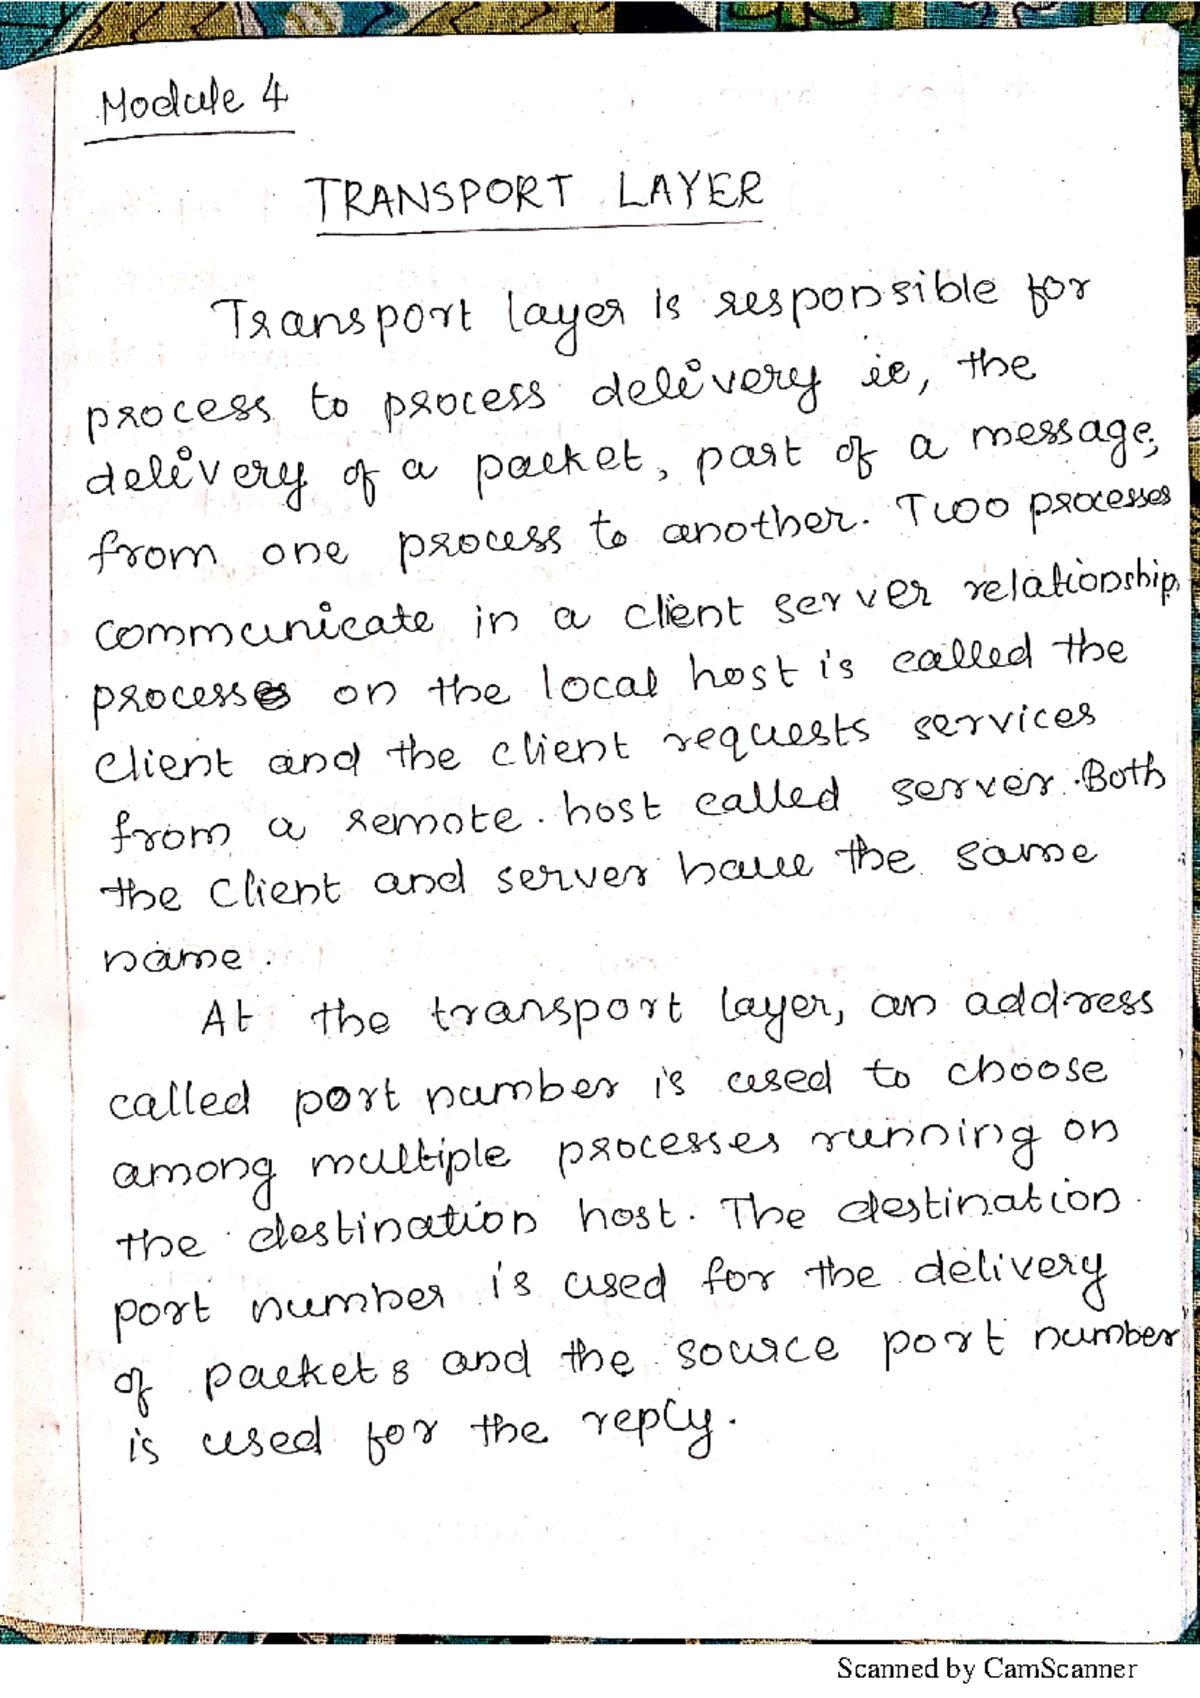 Module 4
TRANSPORT LAYER
Transport layer is responsible for
process to process delivery ie, the
delivery of a packet, part of a message,
from one process to another. Two processes
communicate in a client server relationship,
process on the local host is called the
client and the client requests services
from a remote host called server. Both
the client and server have the same
name.
At the transport layer, an address
called port number is used to choose
among multiple processes running on
the destination host. The destination
port number is used for the delivery
of packets and the source port number
is used for the reply.
Scanned by CamScanner